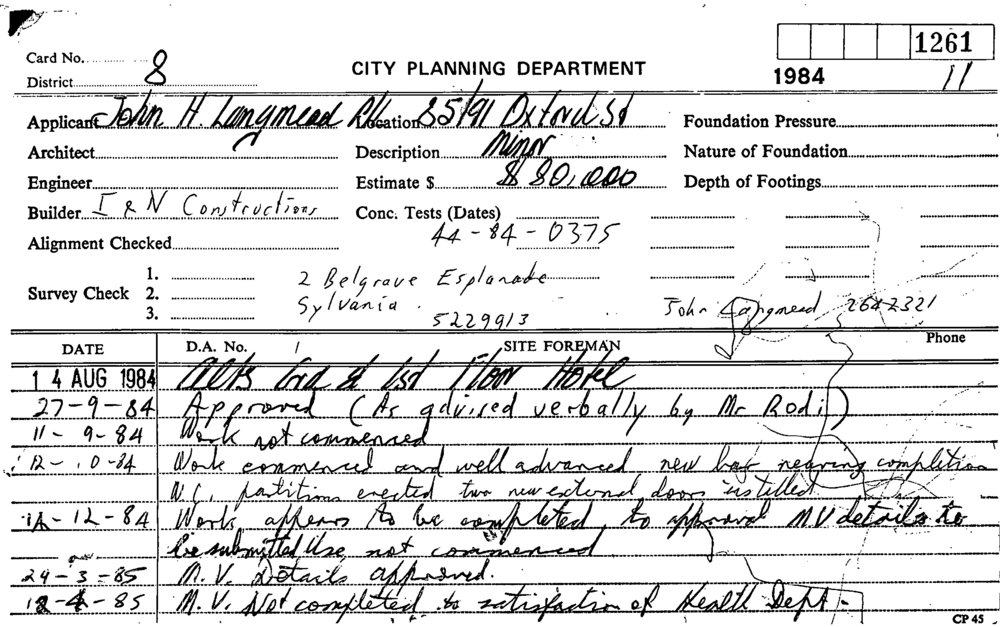 Card No. 8
1261
CITY PLANNING DEPARTMENT
District
1984 11
Applicant John H. Langmead P/L Location 85/91 Oxford St Foundation Pressure
Architect Description Minor Nature of Foundation
Engineer Estimate $ $ 80,000 Depth of Footings
Builder I & N Constructions Conc. Tests (Dates)
44-84-0375
Alignment Checked
Survey Check 1. 2. 3.
2 Belgrave Esplanade
Sylvania.
5229913
John Langmead 2642321
DATE D.A. No. SITE FOREMAN Phone
14 AUG 1984 Alts Grd & 1st Floor Hotel
27-9-84 Approved (As advised verbally by Mr Rodi)
11-9-84 Work not commenced
12-10-84 Work commenced and well advanced, new bar nearing completion
W.C. partitions erected two new external doors installed
12-84 Work appears to be completed, to approval M.V details to
be submitted Use not commenced
29-3-85 M.V. Details approved.
85 M.V. Not completed to satisfaction of Health Dept-
CP 45